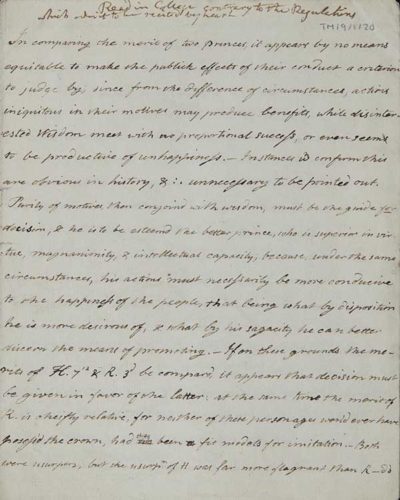 Read in College contrary to the Regulations
which to be recited by heart
TM19/1/20
In comparing the merit of two princes, it appears by no means
equitable to make the publick effects of their conduct a criterion
to judge by, since from the difference of circumstances, actions
iniquitous in their motives may produce benefits, while disinter-
ested Wisdom meet with no proportional success, or even seems
to be productive of unhappiness. – Instances to confirm this
are obvious in history, & ∴ unnecessary to be pointed out.
Purity of motives then conjoind with wisdom, must be the guide for
decision, & he is to be esteemd the better prince, who is superior in vir-
tue, magnanimity, & intellectual capacity, because, under the same
circumstances, his actions must necessarily be more conducive
to the happiness of the people, that being what by disposition
he is more desirous of, & what by his sagacity he can better
discern the means of promoting. – If on these grounds the me-
rits of H. 7th & R. 3d be compard, it appears that decision must
be given in favor of the latter: at the same time the merit of
R. is cheifly relative, for neither of these personages would ever have
possess'd the crown, had they been fit models for imitation. – Both
were usurpers, but the usurpn of H was far more flagrant than R –